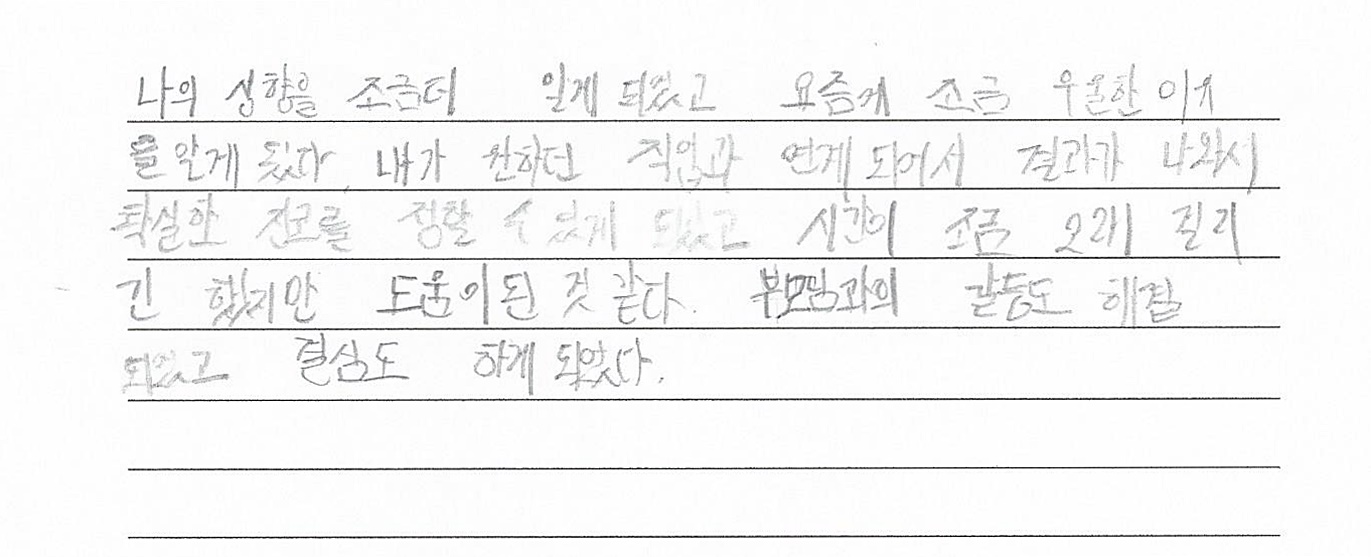 나의 성향을 조금더 알게 되었고 요즘에 조금 우울한 이유
를 알게 됬다. 내가 원하던 직업과 연계 되어서 결과가 나와서
확실한 진로를 정할 수 있게 되었고 시간이 조금 오래 걸리
긴 했지만 도움이 된 것 같다. 부모님과의 갈등도 해결
되었고 결심도 하게 되었다.